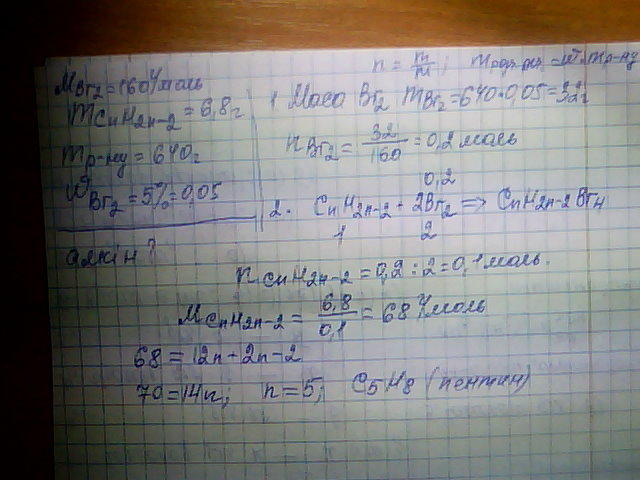 n = m/M; m реч.рез = W·m р-ну
M Br2 = 160 г/моль
m CnH2n-2 = 6,8 г
m р-ну = 640 г
W Br2 = 5% = 0,05
алкін ?
1 Маса Br2 m Br2 = 640·0,05 = 32 г
n Br2 = 32/160 = 0,2 моль
0,2
2. CnH2n-2 + 2Br2 => CnH2n-2 Br4
1 2
n CnH2n-2 = 0,2 : 2 = 0,1 моль.
M CnH2n-2 = 6,8/0,1 = 68 г/моль
68 = 12n + 2n - 2
70 = 14n; n = 5; C5H8 (пентин)